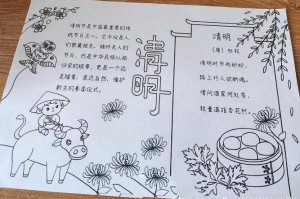 清明节是中国最重要的传
统节日之一。它不仅是人
们祭奠祖先、缅怀先人的
节日，也是中华民族认祖
归宗的纽带，更是一个远
足踏青、亲近自然、催护
新生的春季仪式。
清明
清明
（唐）杜牧
清明时节雨纷纷，
路上行人欲断魂。
借问酒家何处有，
牧童遥指杏花村。